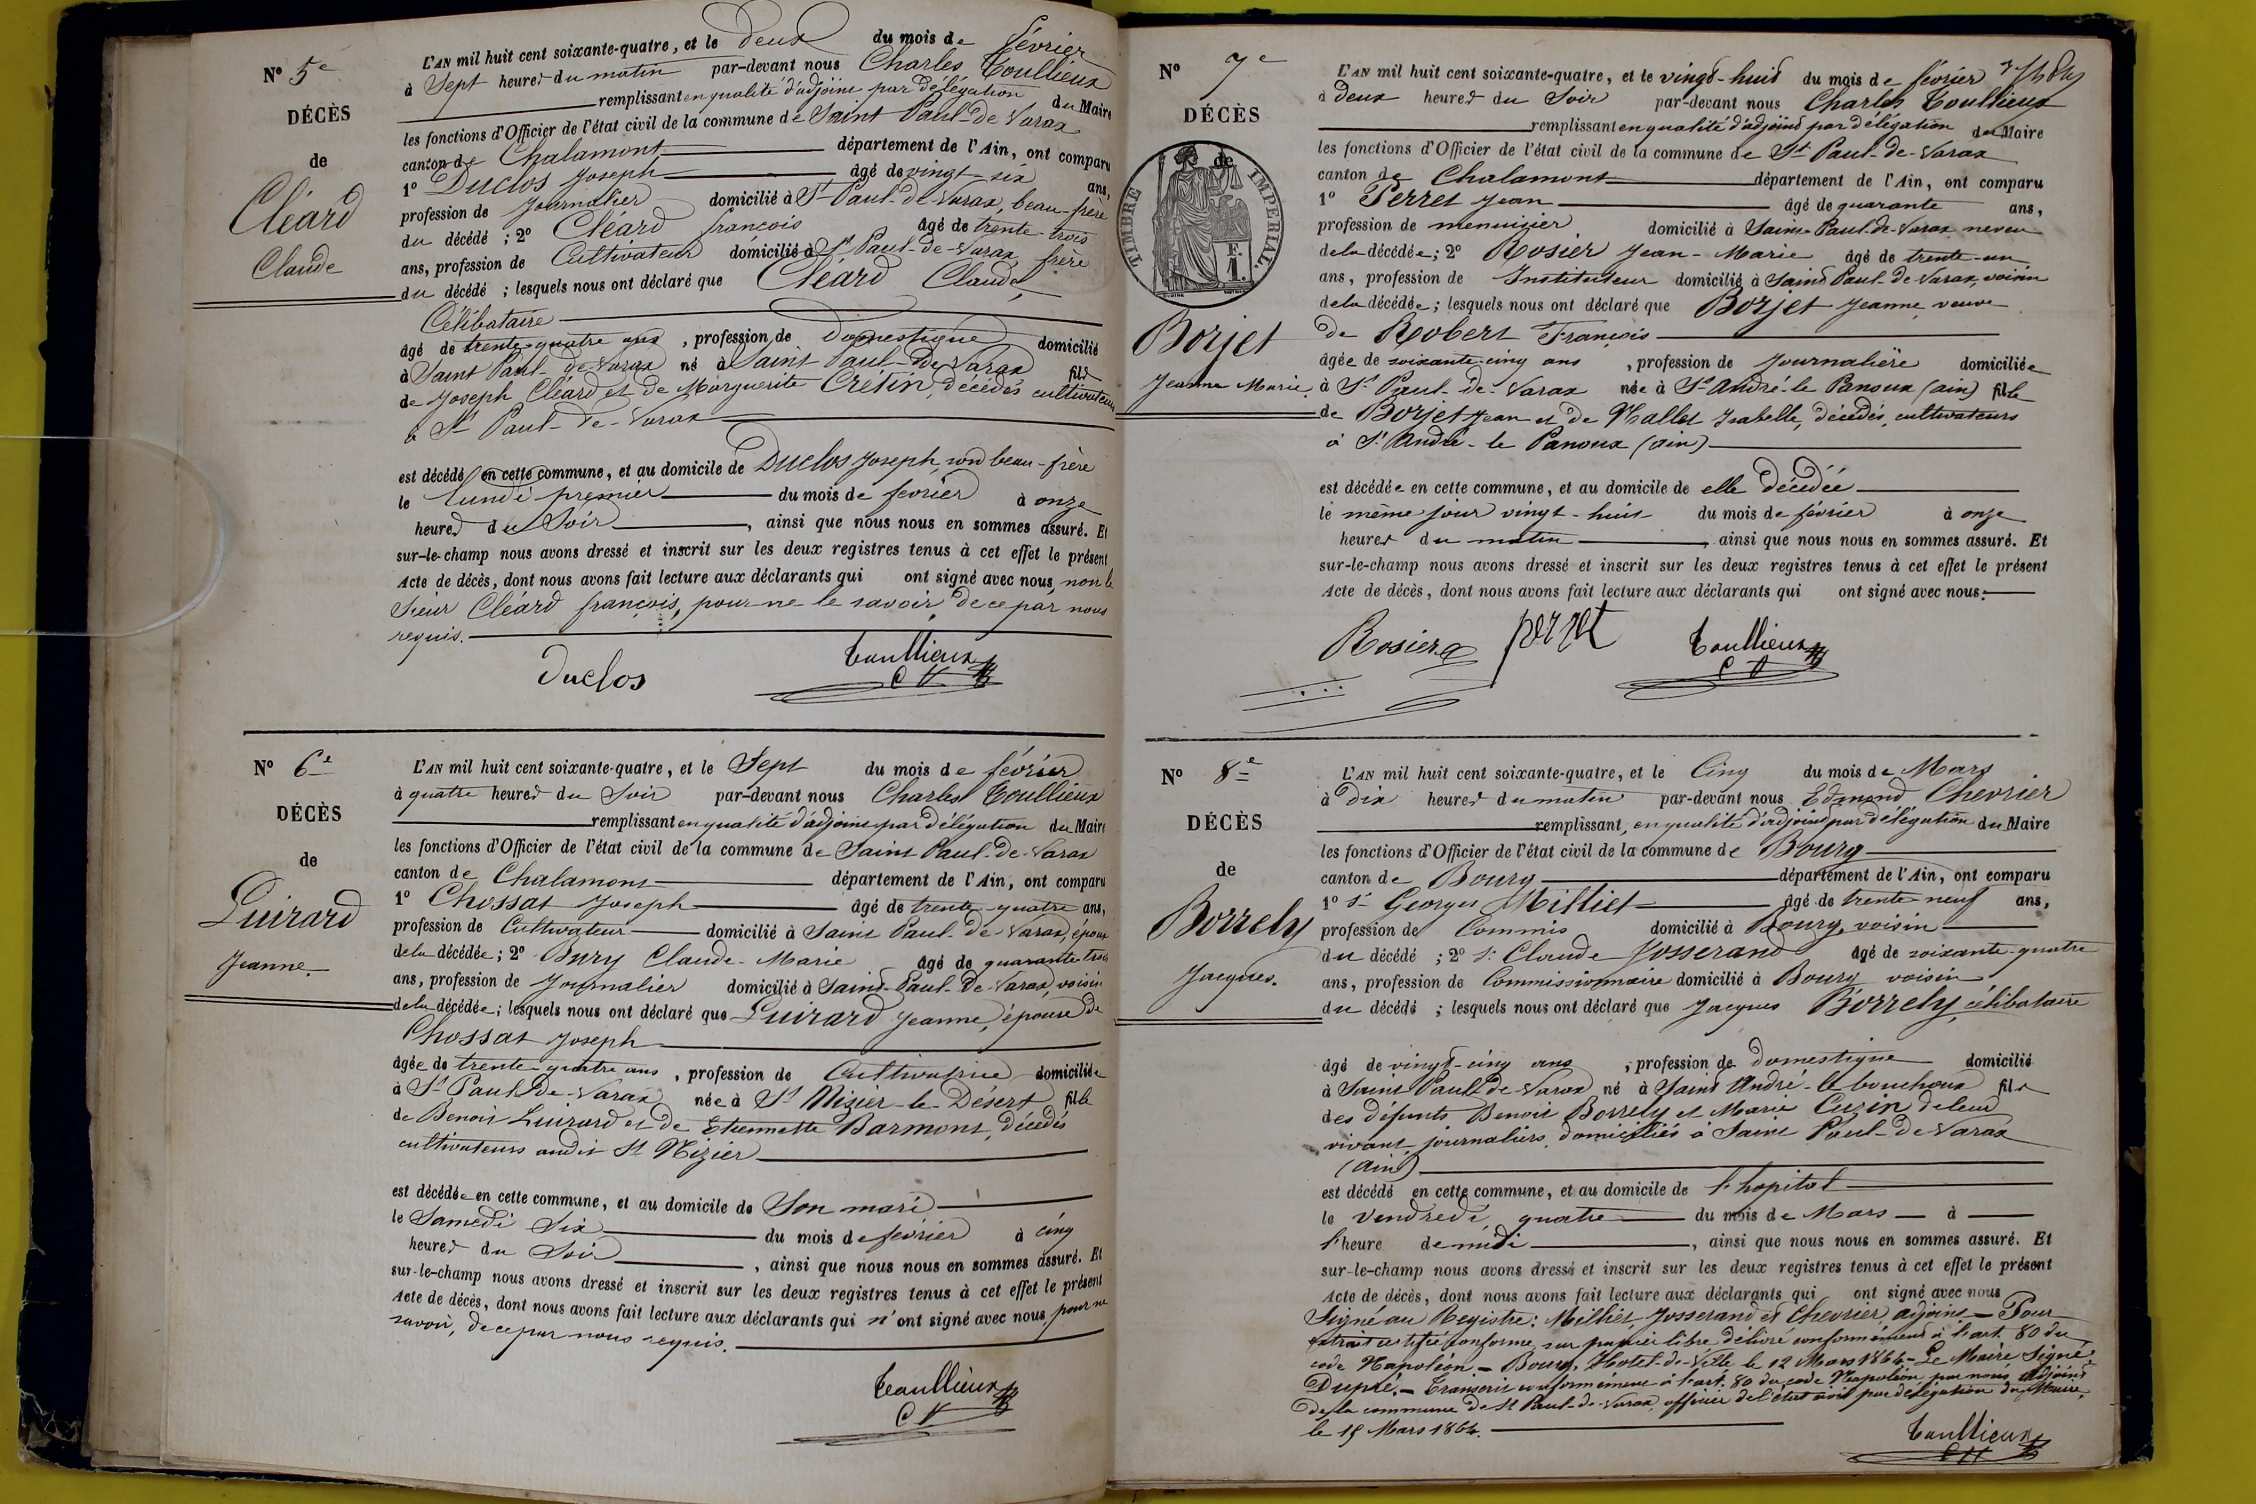 N° 5e
DÉCÈS
de
Cléard
Claude
L'AN mil huit cent soixante-quatre, et le deux du mois de février
à Sept heures du matin par-devant nous Charles Toullieux
remplissant en qualité d'adjoint par délégation du Maire
les fonctions d'Officier de l'état civil de la commune de Saint Paul-de-Varax
canton de Chalamont département de l'Ain, ont comparu
1° Duclos Joseph âgé de vingt-six ans,
profession de Journalier domicilié à St Paul-de-Varax, beau-frère
du décédé ; 2° Cléard françois âgé de trente-trois
ans, profession de Cultivateur domicilié à St Paul-de-Varax, frère
du décédé ; lesquels nous ont déclaré que Cléard Claude,
Célibataire
âgé de trente-quatre ans, profession de Domestique domicilié
à Saint Paul-de-Varax né à Saint Paul-de-Varax fils
de Joseph Cléard et de Marguerite Crétin, décédés cultivateurs
à St Paul-de-Varax
est décédé en cette commune, et au domicile de Duclos Joseph, son beau-frère
le lundi premier du mois de février à onze
heures du Soir, ainsi que nous nous en sommes assuré. Et
sur-le-champ nous avons dressé et inscrit sur les deux registres tenus à cet effet le présent
Acte de décès, dont nous avons fait lecture aux déclarants qui ont signé avec nous, non le
Sieur Cléard françois, pour ne le savoir, de ce par nous
requis.
Duclos Toullieux
N° 6e
DÉCÈS
de
Luirard
Jeanne.
L'AN mil huit cent soixante-quatre, et le Sept du mois de février
à quatre heures du Soir par-devant nous Charles Toullieux
remplissant en qualité d'adjoint par délégation du Maire
les fonctions d'Officier de l'état civil de la commune de Saint Paul-de-Varax
canton de Chalamont département de l'Ain, ont comparu
1° Chossat Joseph âgé de trente-quatre ans,
profession de Cultivateur domicilié à Saint Paul-de-Varax, époux
de la décédée ; 2° Bury Claude-Marie âgé de quarante trois
ans, profession de Journalier domicilié à Saint-Paul-de-Varax, voisin
de la décédée ; lesquels nous ont déclaré que Luirard Jeanne, épouse de
Chossat Joseph
âgée de trente-quatre ans, profession de Cultivatrice domiciliée
à St Paul-de-Varax née à St Nizier-le-Désert fille
de Benoît Luirard et de Etiennette Barmont, décédés
cultivateurs audit St Nizier
est décédée en cette commune, et au domicile de Son mari
le Samedi Six du mois de février à cinq
heures du Soir, ainsi que nous nous en sommes assuré. Et
sur-le-champ nous avons dressé et inscrit sur les deux registres tenus à cet effet le présent
Acte de décès, dont nous avons fait lecture aux déclarants qui n'ont signé avec nous, pour ne
savoir, de ce par nous requis.
Toullieux
N° 7e
DÉCÈS
de
TIMBRE IMPERIAL.
F.
1.
Borjet
Jeanne Marie.
L'AN mil huit cent soixante-quatre, et le vingt-huit du mois de février
à deux heures du Soir par-devant nous Charles Toullieux
remplissant en qualité d'adjoint par délégation du Maire
les fonctions d'Officier de l'état civil de la commune de St Paul-de-Varax
canton de Chalamont département de l'Ain, ont comparu
1° Perret Jean âgé de quarante ans,
profession de menuisier domicilié à Saint-Paul-de-Varax neveu
de la décédée ; 2° Rosier Jean-Marie âgé de trente-un
ans, profession de Instituteur domicilié à Saint Paul-de-Varax, voisin
de la décédée ; lesquels nous ont déclaré que Borjet Jeanne, veuve
de Robert François
âgée de soixante-cinq ans, profession de Journalière domiciliée
à St Paul-de-Varax née à St André-le Panoux (ain) fille
de Borjet Jean et de Mallet Isabelle, décédés, cultivateurs
à St André-le Panoux (ain)
est décédée en cette commune, et au domicile de elle décédée
le même jour vingt-huit du mois de février à onze
heures du matin, ainsi que nous nous en sommes assuré. Et
sur-le-champ nous avons dressé et inscrit sur les deux registres tenus à cet effet le présent
Acte de décès, dont nous avons fait lecture aux déclarants qui ont signé avec nous.
Rosier perret Toullieux
N° 8e
DÉCÈS
de
Borrely
Jacques.
L'AN mil huit cent soixante-quatre, et le Cinq du mois de Mars
à Dix heures du matin par-devant nous Edmond Chevrier
remplissant, en qualité d'adjoint par délégation du Maire
les fonctions d'Officier de l'état civil de la commune de Bourg
canton de Bourg département de l'Ain, ont comparu
1° Sr Georges Milliet âgé de trente neuf ans,
profession de Commis domicilié à Bourg, voisin
du décédé ; 2° Sr Claude Josserand âgé de soixante-quatre
ans, profession de Commissionnaire domicilié à Bourg voisin
du décédé ; lesquels nous ont déclaré que Jacques Borrely, célibataire
âgé de vingt-cinq ans, profession de domestique domicilié
à Saint Paul-de-Varax né à Saint André-le bouchoux fils
des défunts Benoit Borrely et Marie Curin de leur
vivant, journaliers, domiciliés à Saint Paul-de-Varax
(Ain)
est décédé en cette commune, et au domicile de l'hopital
le Vendredi quatre du mois de Mars à
l'heure de midi, ainsi que nous nous en sommes assuré. Et
sur-le-champ nous avons dressé et inscrit sur les deux registres tenus à cet effet le présent
Acte de décès, dont nous avons fait lecture aux déclarants qui ont signé avec nous
Signé au Registre : Milliet, Josserand et Chevrier, adjoint - Pour
extrait certifié conforme sur papier libre délivré conformément à l'art. 80 du
code Napoléon - Bourg, Hotel-de-Ville le 12 Mars 1864 - Le Maire Signé
Dupré. - Transcrit conformément à l'art. 80 du code Napoléon par nous, adjoint
de la commune de St Paul-de-Varax, officier de l'état civil par délégation du Maire,
le 15 Mars 1864.
Toullieux